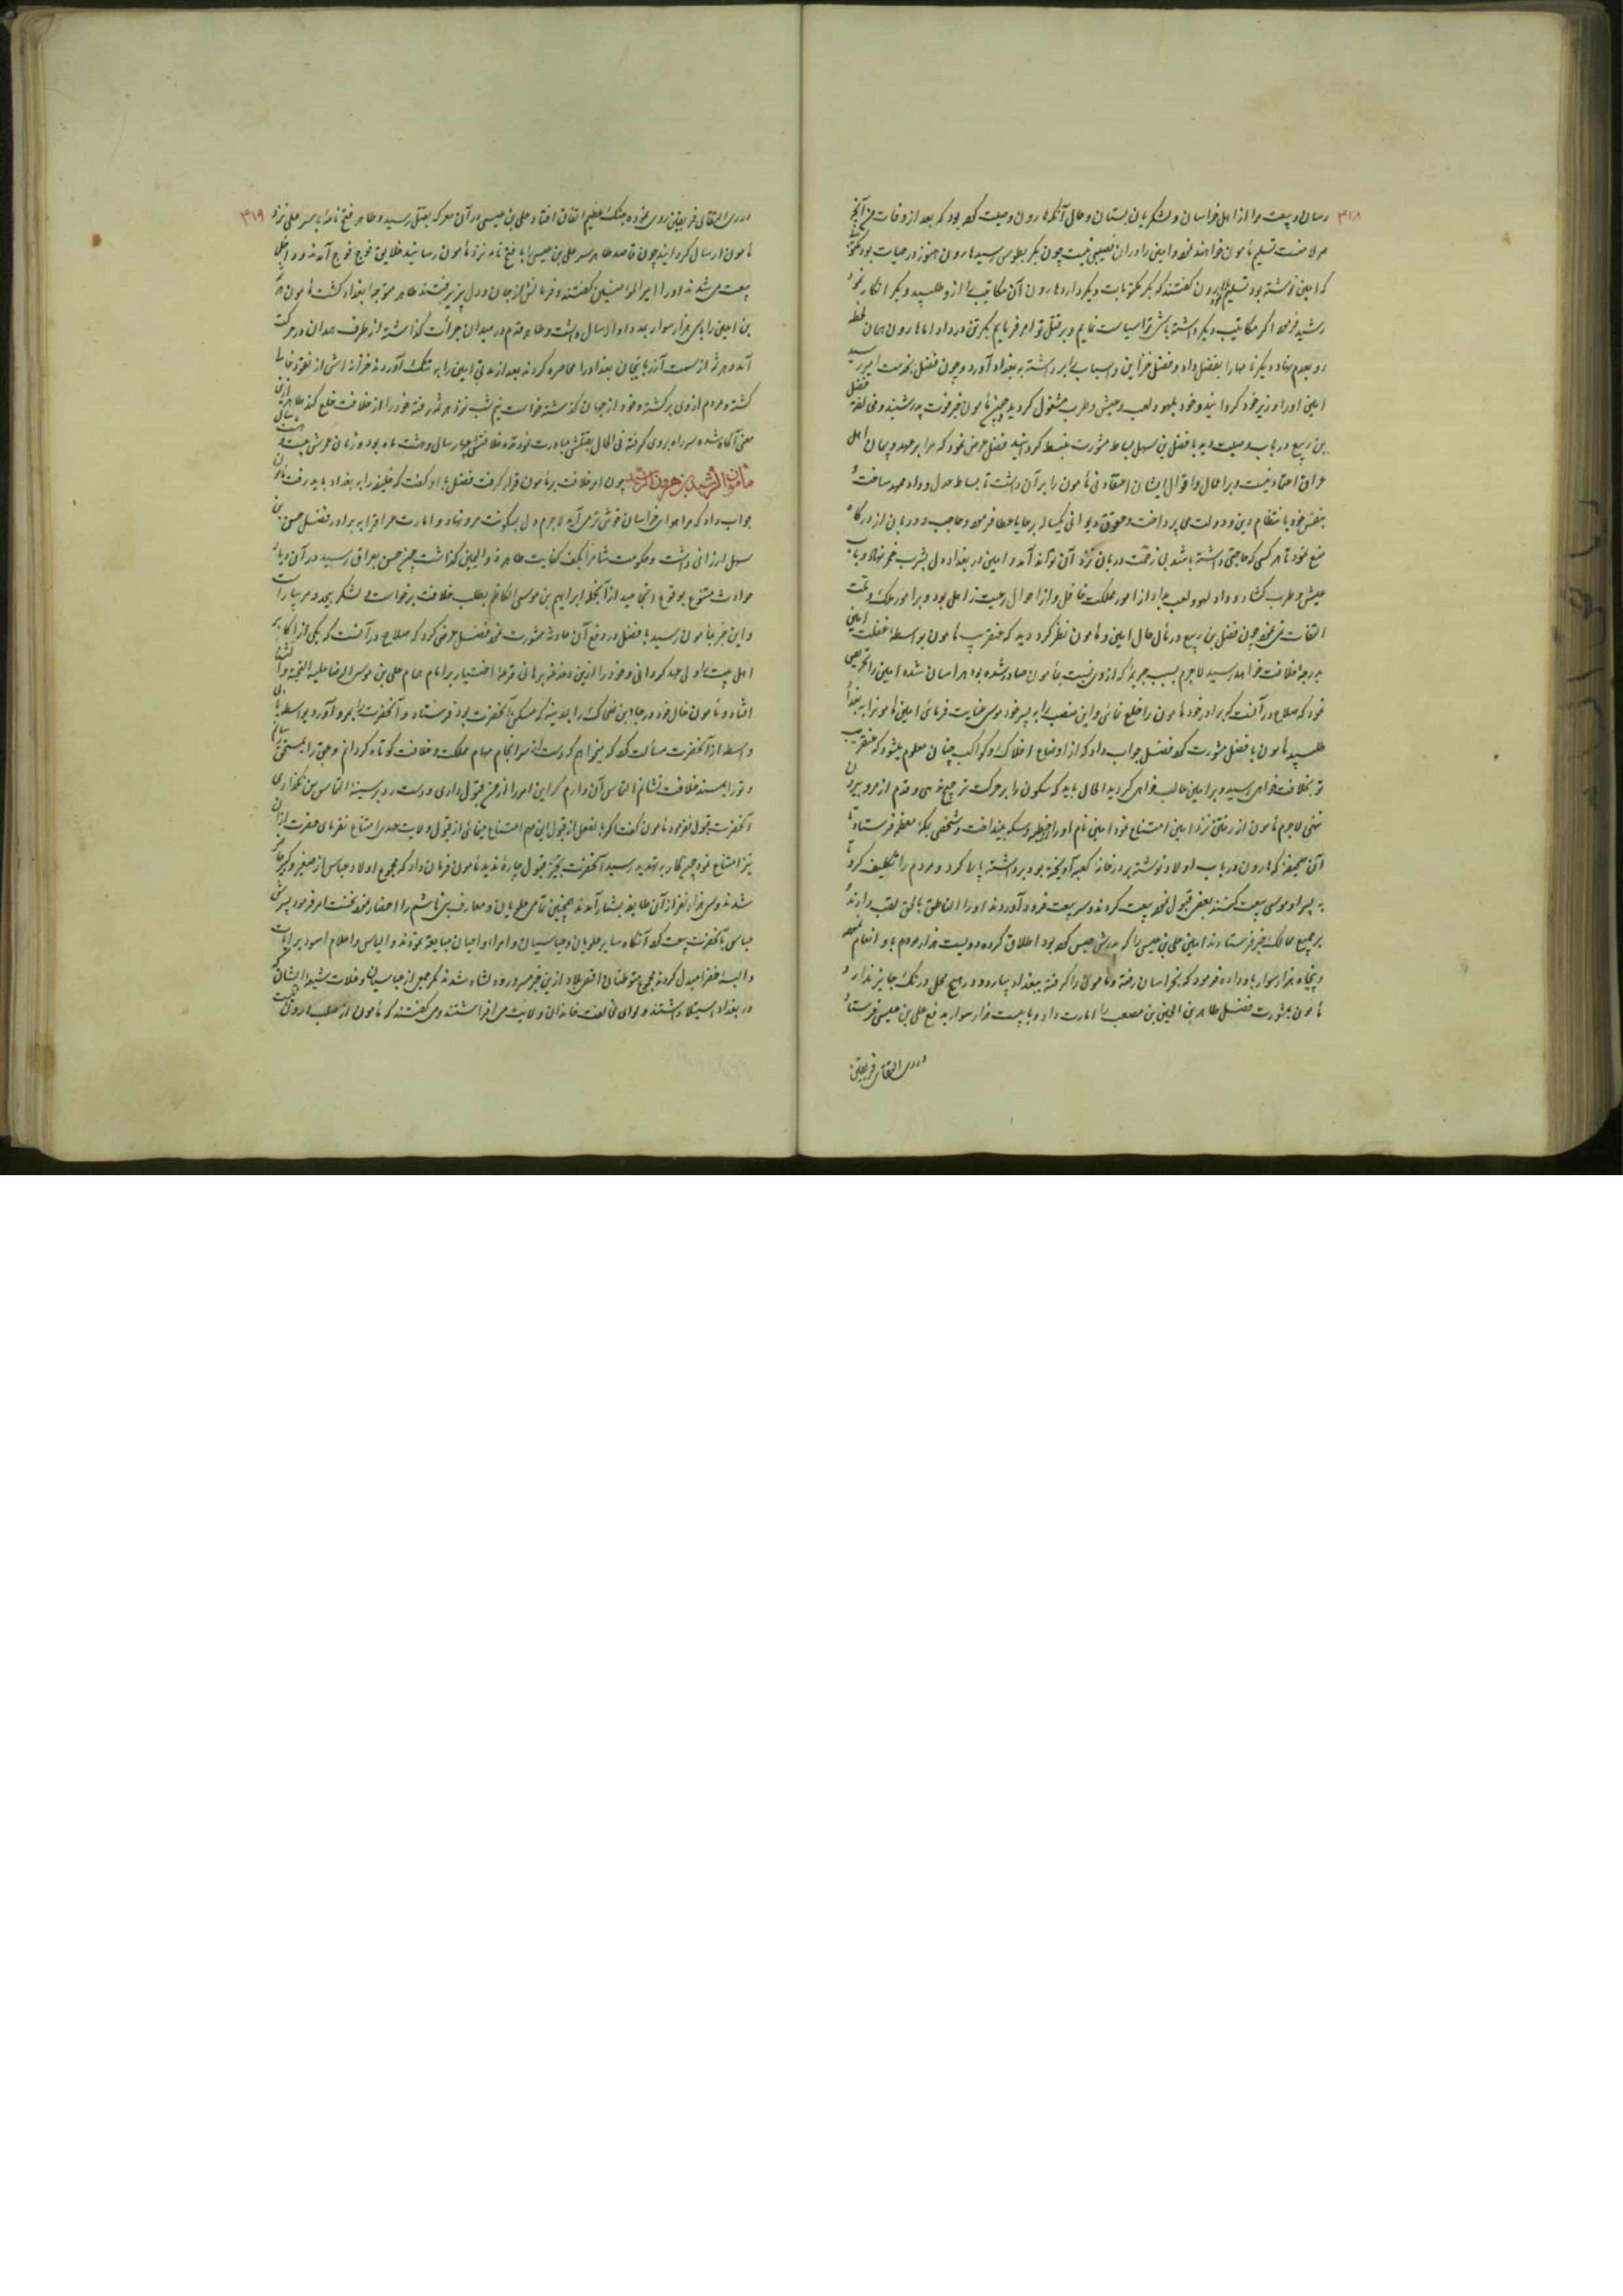 ۳۱۸
رسان و بیعت مرا از اهل خراسان و لشکریان بستان و حال آنکه هارون وصیت کرده بود که بعد از وفات من آنچه
همراه منست تسلیم مأمون خواهند نمود و امین را در آن نصیبی نیست چون بکر بطوس رسید هارون هنوز در حیات بود مکتوبی
که امین نوشته بود تسلیم هارون گفتند که بکر مکتوبات دیگر دارد هارون آن مکاتیب را از و طلبید و بکر انکار نمود
رشید فرمود اگر مکاتیب دیگر داشته باشی ترا سیاست نمایم و بر قتل تو امر فرمایم بکر تن در داد اما هارون همان لحظه
رو بعدم نهاد دیگر نامها را بفضل داد و فضل خزاین و اسباب را برداشته به بغداد آورد و چون فضل بخدمت امین رسید
امین او را وزیر خود گردانید و خود بلهو و لعب و عیش و طرب مشغول گردید چون مأمون خبر فوت پدر شنید و مخالفت فضل
بن ربیع در باب وصیت دید با فضل بن سهل بساط مشورت منبسط گردانید فضل عرض نمود که مرا بر عهد و پیمان اهل
عراق اعتماد نیست و بر اعمال و اقوال ایشان اعتقاد نی مأمون را بر آن داشت تا بساط عدل و داد ممهد ساخت و
بنفس خود بانتظام دین و دولت می پرداخت و حقوق دیوانی یکساله برعایا عطا فرمود و حاجب و دربان از درگاه
منع نمود تا هر کس که حاجتی داشته باشد بی زحمت دربان نزد آن تواند آمد و امین در بغداد دل بشرب خمر نهاد و باب
عیش و طرب گشاد و داد لهو و لعب بداد از امور مملکت غافل و از احوال رعیت ذاهل بود و بر امور ملک و ملت
التفات نمی نمود چون فضل بن ربیع در مآل حال امین و مأمون نظر کرد دید که عنقریب مأمون بواسطه غفلت امین
بدرجه خلافت خواهد رسید لاجرم بسبب جریمه که از وی نسبت بمأمون صادر شده بود هراسان شده امین را تحریص
نمود که صلاح در آنست که برادر خود مأمون را خلع نمائی و این منصب را به پسر خود موسی عنایت فرمائی امین مأمون را به بغداد
طلبید مأمون با فضل مشورت کرد فضل جواب داد که از اوضاع افلاک و کواکب چنان معلوم میشود که عنقریب
تو بخلافت خواهی رسید و بر امین غالب خواهی گردید الحال باید که سکون را بر حرکت ترجیح دهی و قدم از مرو بیرون
ننهی لاجرم مأمون از رفتن نزد امین امتناع نمود امین نام او را از خطبه و سکه بینداخت و شخصی بمکه معظمه فرستاد تا
آن صحیفه که هارون در باب اولاد نوشته بر در خانه کعبه آویخته بود برداشته پاره کرد و مردم را تکلیف کرد تا
به پسر او موسی بیعت کنند بعضی قبول نموده بیعت کردند و سر بیعت فرود آوردند او را الناطق بالحق لقب دادند و
بر جمیع ممالک خبر فرستادند امین علی بن عیسی را که پدرش حبس کرده بود اطلاق کرده دویست هزار درهم باو انعام نمود
و پنجاه هزار سوار باو داده فرمود که بخراسان رفته و مأمون را گرفته ببغداد بیارد و در هیچ محل درنگ جایز ندارد
مأمون بمشورت فضل طاهر بن الحسین بن مصعب را امارت داد و با بیست هزار سوار بدفع علی بن عیسی فرستاد
در ری التقای فریقین
۳۱۹
در ری التقای فریقین روی نموده جنگ عظیم اتفاق افتاد و علی بن عیسی در آن معرکه بقتل رسید و طاهر فتح نامه را با سر علی نزد
مأمون ارسال گردانید چون قاصد طاهر سر علی بن عیسی را با فتح نامه نزد مأمون رسانید خلایق فوج فوج آمدند و داخل
بیعت می شدند او را امیر المؤمنین گفتند و فرمانش از جان و دل پذیرفتند طاهر متوجه بغداد گشت مأمون
بن اعین را با سی هزار سوار بمدد او ارسال داشت و طاهر قدم در میدان جرأت گذاشته از طرف همدان در حرکت
آمد و هرثمه از سمت آذربایجان بغداد را محاصره کردند بعد از مدتی امین را به تنگ آوردند خزانه اش از نقود خالی
گشته و مردم از وی برگشته و خود از جهان گذشته خواست نیم شب نزد هرثمه رفته خود را از خلافت خلع کند طاهر از این
معنی آگاه شده سر راه بر وی گرفته فی الحال بقتلش مبادرت نمود مدة خلافتش چهار سال و هشت ماه بود و زمان عمرش بیست و هشت سال
مأمون الرشید بن هرون الرشید چون امر خلافت بر مأمون قرار گرفت فضل با او گفت که خلیفه را به بغداد باید رفت مأمون
جواب داد که مرا هوای خراسان خوش تر می آید لاجرم دل بسکونت مرو نهاد و امارت عراق را به برادر فضل حسن بن
سهل ارزانی داشت و حکومت شام را بکف کفایت طاهر ذو الیمینین گذاشت چون حسن بعراق رسید در آن دیار
حوادث متنوع بوقوع انجامید از آنجمله ابراهیم بن موسی الکاظم بطلب خلافت برخواست و لشکر بیحد و مر بیاراست
و این خبر بمأمون رسید با فضل در دفع آن حادثه مشورت نمود فضل عرض کرد که صلاح در آنست که یکی از اکابر
اهل بیت را ولی عهد گردانی و خود را از این دغدغه برهانی قرعه اختیار بر امام همام علی بن موسی الرضا علیه التحیة و الثنا
افتاد و مأمون خال خود رجاء بن ضحاک را بمدینه که مسکن آنحضرت بود فرستاد و آنحضرت را بمرو آورد بواسطه یا بی
واسطه از آنحضرت مسألت کرد که میخواهم که دست از سرانجام مهام مملکت و خلافت کوتاه گردانم و حق را بمستحق رسانم
و تو را بمسند خلافت نشانم التماس آن دارم که این امر را از من قبول داری و دست رد بر سینه التماس من نگذاری
آنحضرت قبول نفرمود مأمون گفت اگر بالفعل از قبول این مهم امتناع مینمائی از قبول ولایت عهدی امتناع نفرمای حضرت از آن
نیز امتناع نمود چون کار به تهدید رسید آنحضرت بجز قبول چاره ندید مأمون فرمان داد که مجموع اولاد عباس از صغیر و کبیر حاضر
شدند و سی هزار نفر از آن طایفه بشمار آمدند همچنین تمامی علویان و معارف بنی هاشم را احضار نمود نخست امر فرمود پسرش
عباس با آنحضرت بیعت کرد آنگاه سایر علویان و عباسیان و امراء و اعیان مبایعت نمودند و الباس و اعلام اسود برایات
و البسه خضرا مبدل کردند مجموع متوطنان اقصی بلاد از این خبر مسرور و دلشاد شدند مگر جمعی از عباسیان و غلات شیعه ایشان که
در بغداد استیلا داشتند و لوای مخالفت خاندان ولایت می افراشتند و می گفتند که مأمون از صلب هارون نیست